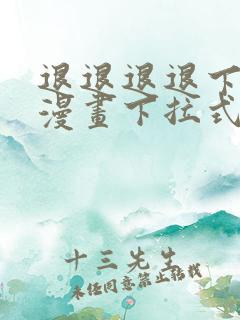 退退退退下
漫畫下拉式
十三先生
未经同意禁止转载